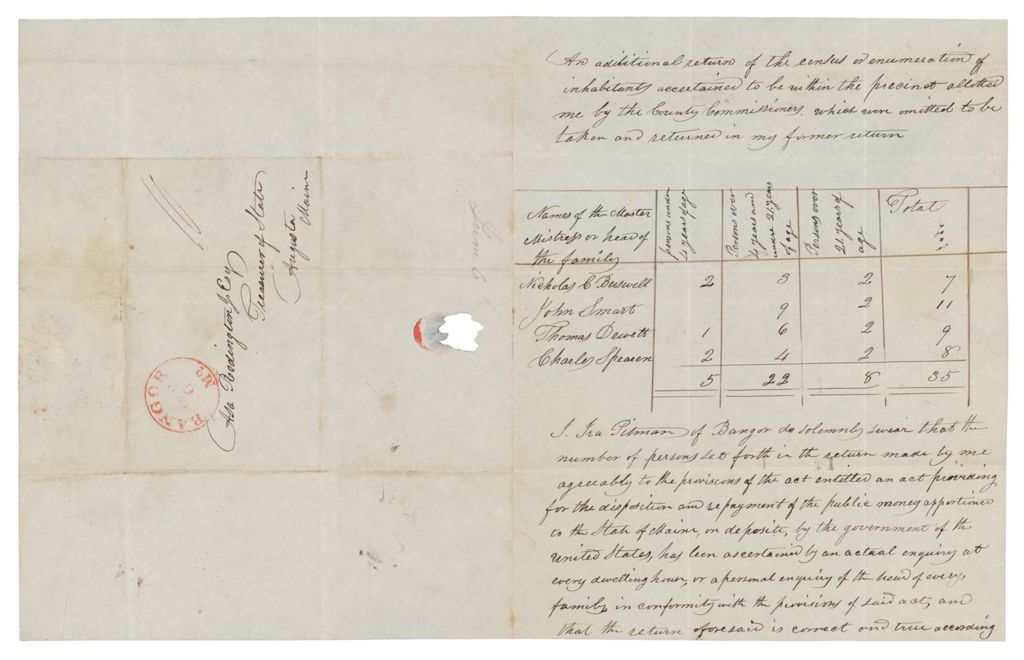 Asa Redington Jr Esq
Treasurer of State
Augusta
Maine
BANGOR
Me
An additional return of the census or enumeration of
inhabitants ascertained to be within the precinct allotted
me by the County Commissioners, which were omitted to be
taken and returned in my former return
Names of the Master Mistress or head of the family | persons under 4 years of age | Persons over 4 years and under 21 years of age | Persons over 21 years of age | Total
Nicholas C Buswell 2 3 2 7
John Smart 9 2 11
Thomas Dewett 1 6 2 9
Charles Spearen 2 4 2 8
5 22 8 35
I. Ira Pitman of Bangor do solemnly swear that the
number of persons set forth in the return made by me
agreeably to the provisions of the act entitled an act providing
for the disposition and repayment of the public money apportioned
to the State of Maine, on deposite, by the government of the
United States, has been ascertained by an actual enquiry at
every dwelling house, or a personal enquiry of the head of every,
family, in conformity with the provisions of said act, and
that the return aforesaid is correct and true according